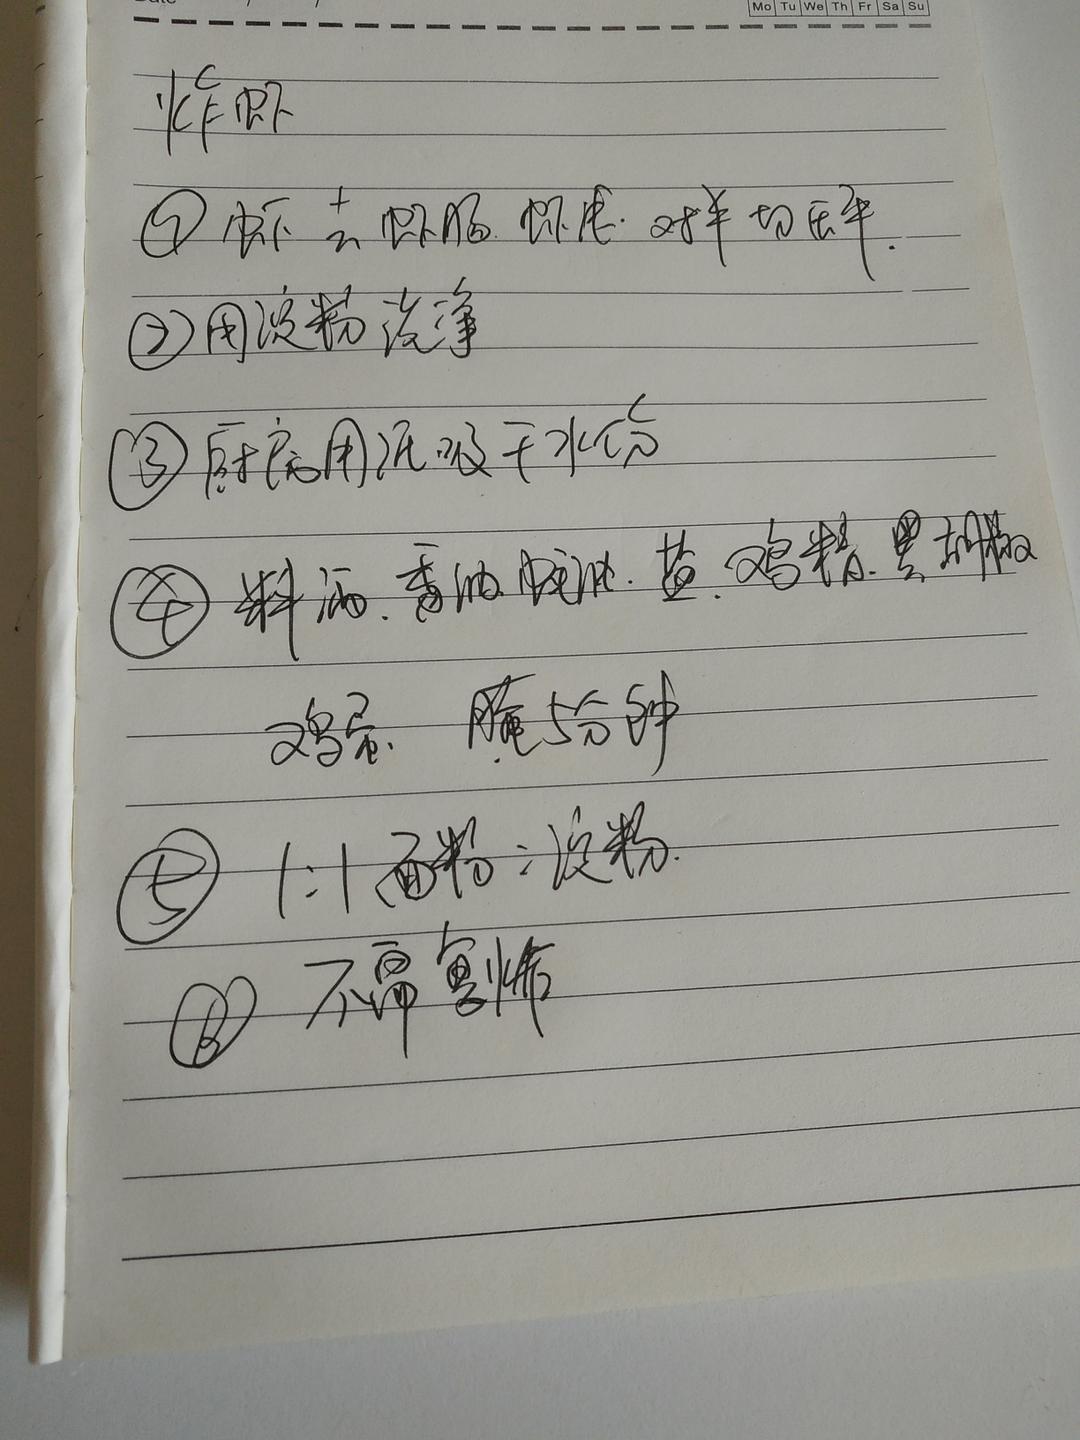 Mo Tu We Th Fr Sa Su
炸虾
① 虾去虾肠. 虾尾. 对半切压平.
② 用淀粉洗净
③ 厨房用纸吸干水份
④ 料酒. 香油. 蚝油. 盐. 鸡精. 黑胡椒
鸡蛋. 腌5分钟
⑤ 1:1 面粉:淀粉.
⑥ 不需复炸